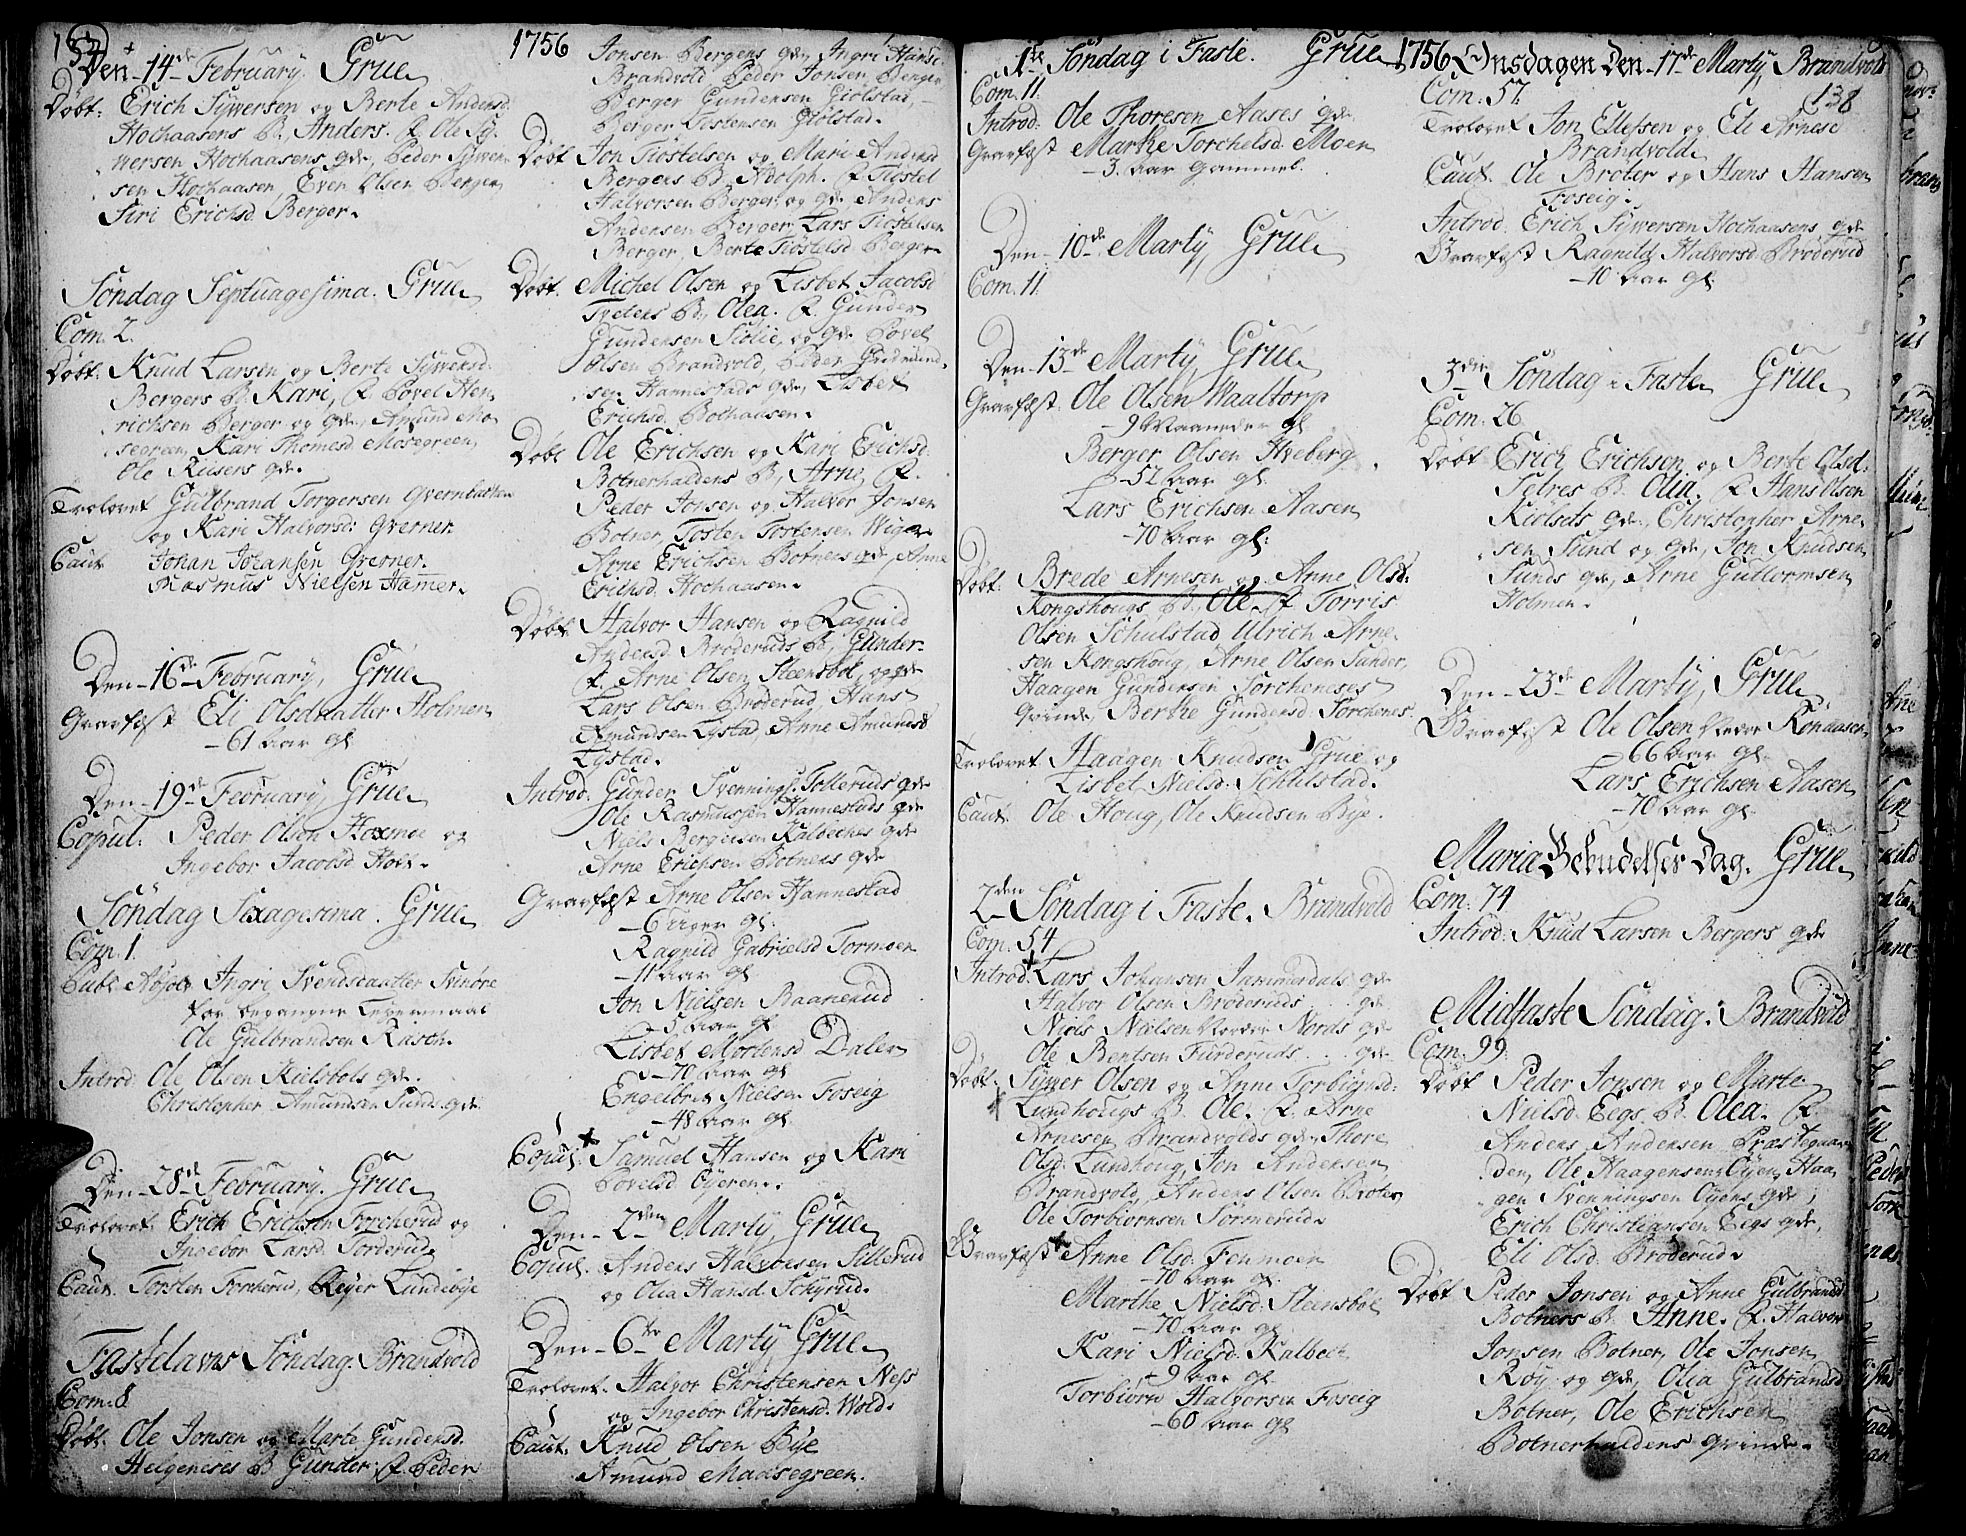 1756
Den 14de February. Grue
Døbt: Erich Sywersen og Berte Andersd.
Hochaasens B. Anders. F. Ole Sy-
wersen Hochaasens qde, Peder Sywer-
sen Hochaasen, Even Olsen Berger,
Siri Erichsd Berger.
Søndag Septuagesima. Grue
Com. 2.
Døbt. Knud Larsen og Berte Sywersd.
Bergers B. Kari, F. Povel Hen-
richsen Berger og qde, Amund Mo-
segreen, Kari Thomesd Mosegreen,
Ole Riisers qde.
Trolovet Gulbrand Torgersen Qvernbachen
og Kari Halvorsd: Qverner
Caut. Johan Johansen Qverner.
Rasmus Nielsen Hamer.
Den 16de February, Grue
Gravfæst Eli Olsdaatter Holmen
61 aar gl.
Den 19de February, Grue
Copul: Peder Olsen Hoxmoe og
Ingebor Jacobsd Hois.
Søndag Sexagesima. Grue
Com. 1.
Publ. Absolv. Ingri Svendsdaatter Svinøre
for begangne Leyermaal
Ole Gulbrandsen Rasch.
Introd: Ole Olsen Kielsbols qde.
Christopher Amundsen Sunds qde
Den 28de February. Grue
Trolovet. Erich Erichsen Forcherud og
Ingebor Larsd Torderud.
Caut. Torsten Forcherud, Reyer Lundebye
Fastelavns Søndag. Brandvold
Com: 8
Døbt. Ole Jonsen og Marte Gundersd.
Helgeneses B Gunder, F. Peder
1756
Jonsen Bergers qde, Ingri Hansd
Brandvold Peder Jonsen Berger
Berger Gundersen Giølstad,
Berger Tostensen Giølstad.
Døbt Jon Tiøstelsen og Mari Andersd
Bergers B. Adolph. F. Tiøstel
Halvorsen Berger og qde Anders
Andersen Berger, Lars Tiøstelsen
Berger, Berte Tiøstelsd Berger
Døbt. Michel Olsen og Lisbet Jacobsd
Tvetens B. Olea. F. Gunder
Gundersen Siølie, og qde Povel
Olsen Brandvold, Peder Gudmund-
sen Hannestads qde, Lisbet
Erichsd. Bothaasen.
Døbt Ole Erichsen og Kari Erichsd.
Botnerhaldens B, Arne, F.
Peder Jonsen og Halvor Jonsen
Botner, Tosten Tostensen Wiger
Arne Erichsen Botners qde, Anne
Erichsd. Hochaasen.
Døbt Halvor Hansen og Ragnild
Andersd Brøderuds B, Gunder-
F. Arne Olsen Steensbøl, og qde
Lars Olsen Brøderud, Hans
Amundsen Lystad, Anne Amundsd
Lystad.
Introd: Gunder Svennings: Tolleruds qde
Ole Rasmussen Hannestads qde
Niels Bergersen Kalbechs qde
Arne Erichsen Botners qde
Gravfæst Arne Olsen Hannestad
6 uger gl:
Ragnild Gabrielsd Tormoen
11 aar gl
Jon Nielsen Baanerud
5 aar gl
Lisbet Mortensd Dalen
70 aar gl
Engelbret Nielsen Foseig
48 aar gl
Copul: Samuel Hansen og Kari
Povelsd Øyeren.
Den 2den Martÿ, Grue
Copul. Anders Halvorsen Sillerud
og Olia Hansd. Schyrud.
Den 6te Martÿ Grue
Trolovet. Halvor Christensen Ness
og Ingebor Christensd. Wold.
Caut. Knud Olsen Bye
Amund Maasegreen.
1ste Søndag i Faste. Grue
Com. 11.
Introd: Ole Thoresen Aases qde
Gravfæst Marthe Torchelsd. Moen
3 aar gammel.
Den 10de Martÿ, Grue
Com. 11.
Den 13de Martÿ, Grue
Gravfæst: Ole Olsen Waaltorp
9 Maaneder gl
Berger Olsen Hveberg
52 aar gl.
Lars Erichsen Aasen
70 aar gl:
Døbt: Brede Arnesen og Anne Olsd:
Kongshougs B, Ole. F. Torris
Olsen Schulstad, Ulrich Arne-
sen Kongshoug, Arne Olsen Sunder,
Haagen Gundersen Torcheneses
Qvinde, Berthe Gundersd Torchenes.
Trolovet Haagen Knudsen Grue og
Lisbet Nielsd. Schulstad.
Caut. Ole Houg, Ole Knudsen Bye.
2den Søndag i Faste. Brandvold
Com. 54
Introd: Lars Johansen Jammerdals qde
Halvor Olsen Brøderuds qde
Niels Nielsen Nedre Nords qde
Ole Bentsen Furderuds qde
Døbt. Sywer Olsen og Anne Torbiørnsd:
Lundhougs B. Ole. F. Arne
Arnesen Brandvolds qde, Thore
Olsd: Lundhoug, Jon Andersen
Brandvold, Anders Olsen Broter,
Ole Torbiørnsen Sørmerud.
Gravfæst Anne Olsd. Fenmoen
70 aar gl.
Marthe Nielsd: Steensbøl
70 aar gl
Kari Nielsd. Kalbech
9 aar gl
Torbiørn Halvorsen Foseig
60 aar gl
1756 Onsdagen den 17de Martÿ Brandvold
138
Com: 57.
Trolovet Jon Ellefsen og Eli Arnesd
Brandvold
Caut. Ole Broter og Hans Hansen
Foseig.
Introd. Erich Sywersen Hochaasens qde
Gravfæst Ragnild Halvorsd. Brøderud
10 aar gl.
3die Søndag i Faste Grue
Com: 26
Døbt Erich Erichsen og Berte Olsd:
Setres B. Olia. F. Hans Olsen
Kiølsets qde, Christopher Arne-
sen Sund og qde, Jon Knudsen
Sunds qde, Arne Guttormsen
Holmen.
Den 23de Martÿ, Grue
Gravfæst Ole Olsen Nedre Rønaasen
66 aar gl.
Lars Erichsen Aasen
70 aar gl
Maria Bebudelses Dag. Grue
Com: 74
Introd: Knud Larsen Bergers qde
Midfaste Søndag. Brandvold
Com. 99.
Døbt Peder Jonsen og Marte
Nielsd. Eegs B. Olea. F.
Anders Andersen Præstegaar-
den, Ole Haagensen Øyen, Haa-
gen Svenningsen Øyens qde,
Erich Christiansen Eegs qde,
Eli Olsd. Brøderud.
Døbt Peder Jonsen og Anne Gulbrandsd
Botners B. Anne. F. Halvor
Jonsen Botner, Ole Jonsen
Røy og qde, Olia Gulbrandsd
Botner, Ole Erichsen
Botnerhaldens Qvinde.